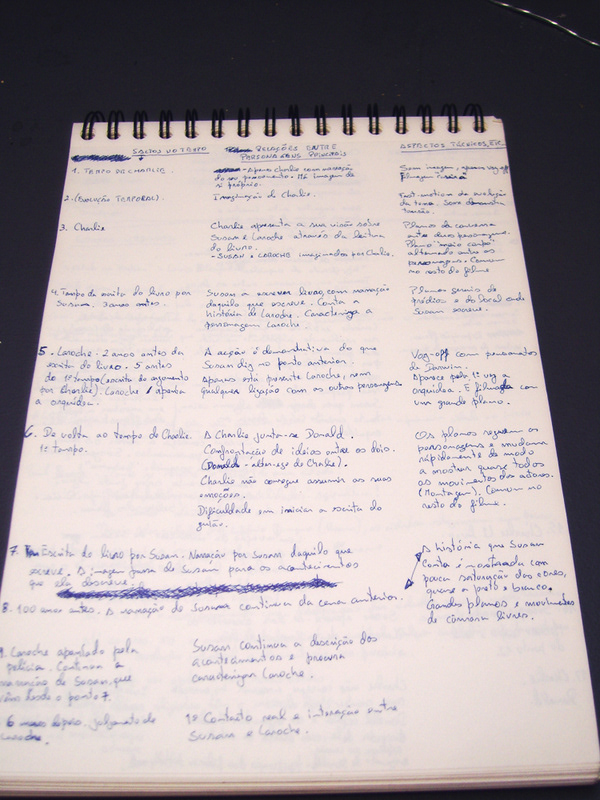 SALTOS NO TEMPO
RELAÇÕES ENTRE
PERSONAGENS PRINCIPAIS
ASPECTOS TÉCNICOS, ETC.
1. TEMPO DE CHARLIE.
Apenas Charlie com narração
do seu pensamento. Má imagem de
si próprio.
Sem imagem, apenas voz-off
2. (EVOLUÇÃO TEMPORAL).
Imaginação de Charlie.
da evolução
da terra.
3. Charlie
Charlie apresenta a sua visão sobre
Susan e Laroche através da leitura
do livro.
- SUSAN e LAROCHE imaginados por Charlie.
Plano da conversa
entre duas personagens.
Plano "meio corpo"
alternado entre as
personagens. Comum
no resto do filme
4. Tempo da escrita do livro por
Susan. 3 anos antes.
Susan a escrever livro, com narração
daquilo que escreve. Conta a
história de Laroche. Caracteriza a
personagem Laroche.
Planos gerais de
prédios e do local onde
Susan escreve.
5. Laroche - 2 anos antes da
escrita do livro. 5 antes
do 1º tempo (escrita do argumento
por Charlie). Laroche aparece a
orquídea.
A acção é demonstrativa do que
Susan diz no ponto anterior.
Apenas está presente Laroche, sem
qualquer ligação com os outros personagens
Voz-off com pensamentos
de Darwin.
Aparece pela 1ª vez a
orquídea. É filmada com
um grande plano.
6. De volta ao tempo de Charlie.
1º tempo.
A Charlie junta-se Donald.
Confrontação de ideias entre os dois.
(Donald - alter-ego de Charlie).
Charlie não consegue assumir as suas
emoções.
Dificuldade em iniciar a escrita do
guião.
Os planos seguem os
personagens e mudam
rápidamente de modo
a mostrar quase todos
os movimentos dos actores.
(Montagem). Comum no
resto do filme.
7. Escrita do livro por Susan. Narração por Susan daquilo que
escreve. A imagem passa de Susan para os acontecimentos
que ela descreve.
A história que Susan
conta é mostrada com
pouca saturação das cores,
quase a preto e branco.
Grandes planos e movimentos
de câmara livres.
8. 100 anos antes. A narração de Susan continua da cena anterior.
9. Laroche apanhado pela
polícia. Continua a
narração de Susan, que
vem desde o ponto 7.
Susan continua a descrição dos
acontecimentos e procura
caracterizar Laroche.
6 meses depois. julgamento de
Laroche.
1º Contacto real e interação entre
Susan e Laroche.